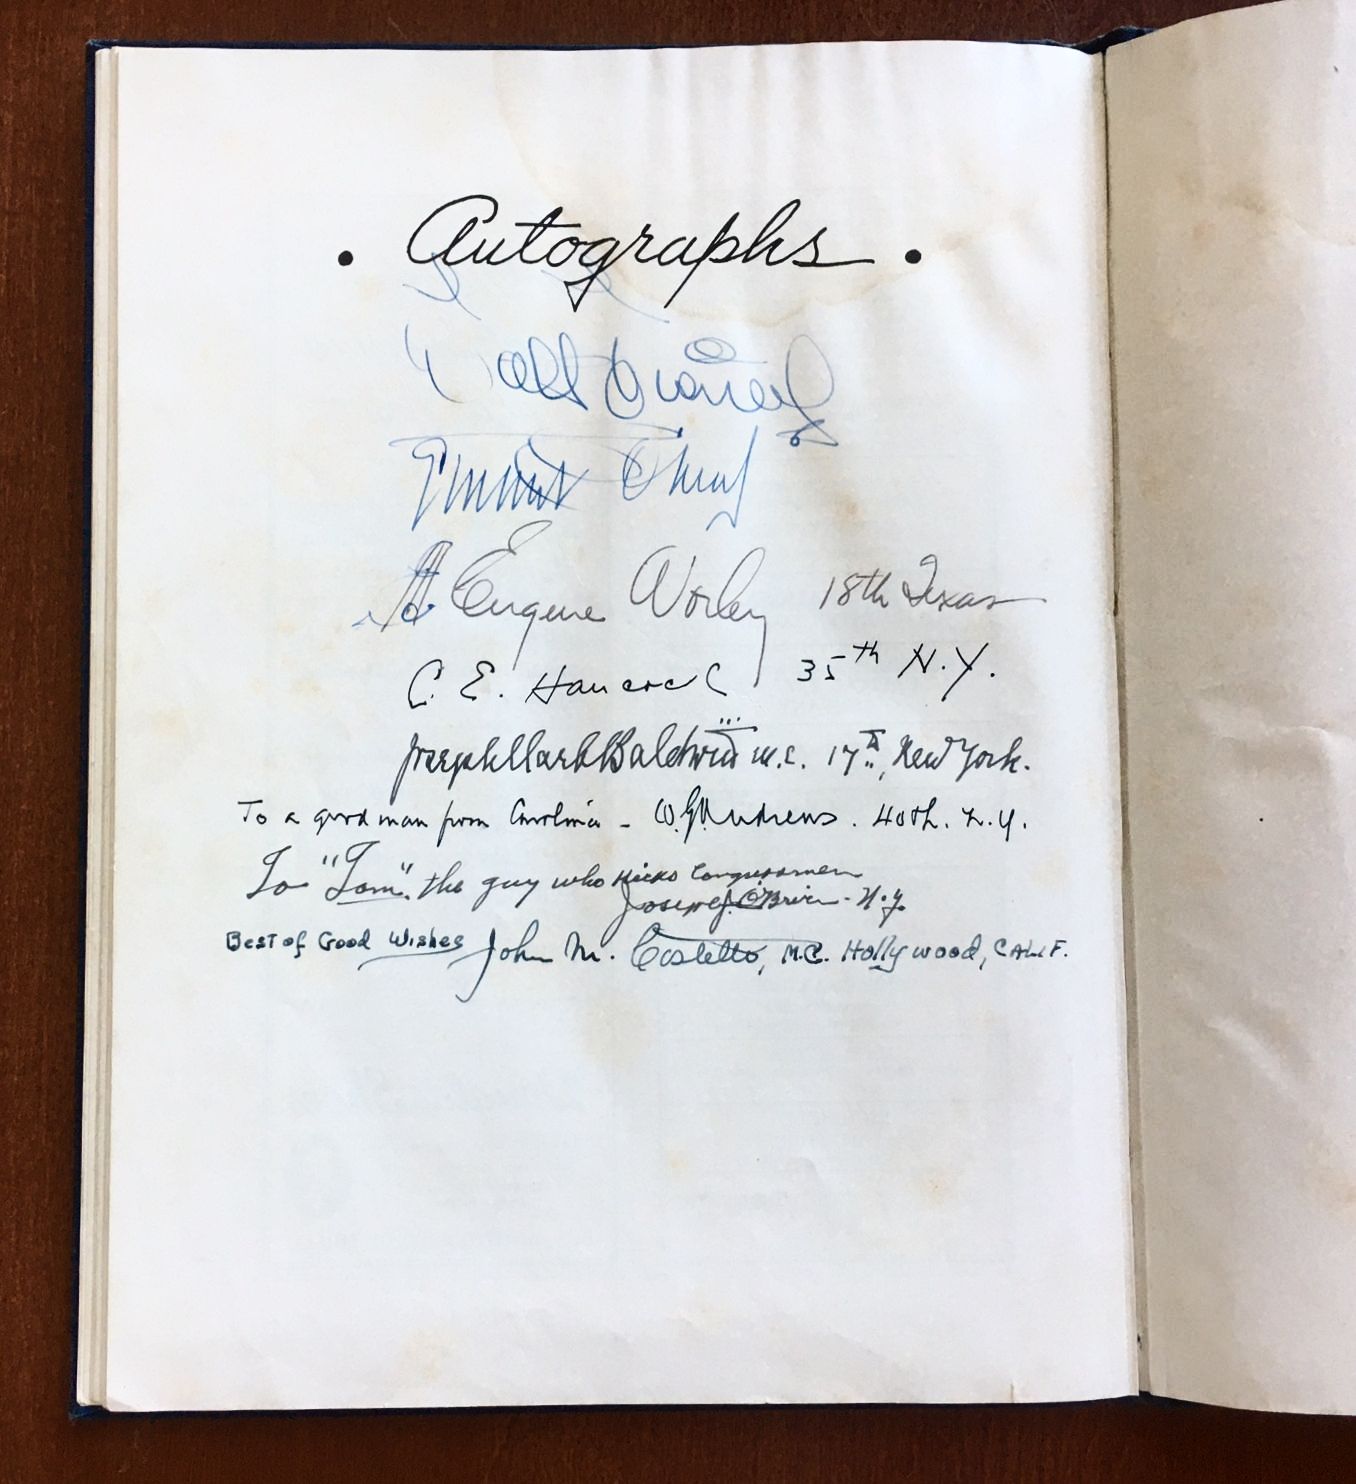 • Autographs •
Walt Disney
Eugene Worley 18th Texas
C. E. Hancock 35th N.Y.
Joseph Clark Baldwin III M.C. 17th, New York.
To a good man from Carolina - W.G. Andrews. 40th. N.Y.
To "Tom" the guy who kicks Congressmen
Joseph J. O'Brien - N.Y.
Best of Good Wishes John M. Costello, M.C. Hollywood, CALIF.